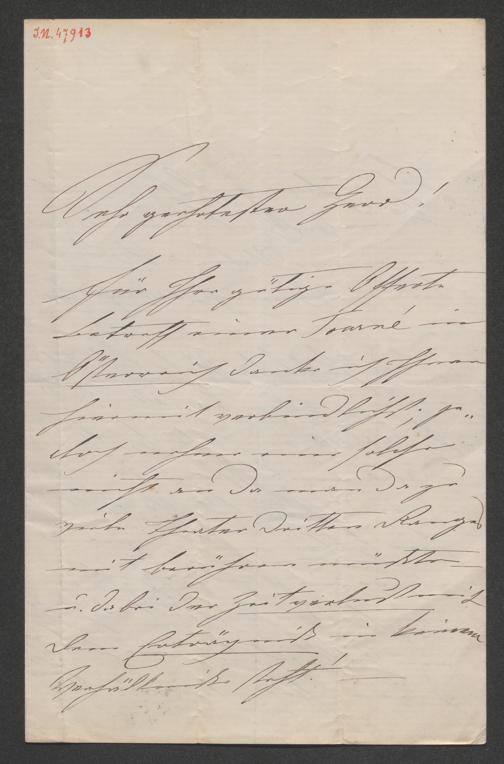 J.N. 47913
Sehr geehrtester Herr!
Für Ihre gütige Offerte
betreff einer Tourné in
Österreich danke ich Ihnen
hiermit verbindlichst; je-
doch nehme eine solche
nicht an da man da zu
viele Theater dritten Ranges
mit berühren müßte
u. dabei der Zeitverlust mit
dem Erträgniß in keinem
Verhältniße steht! —